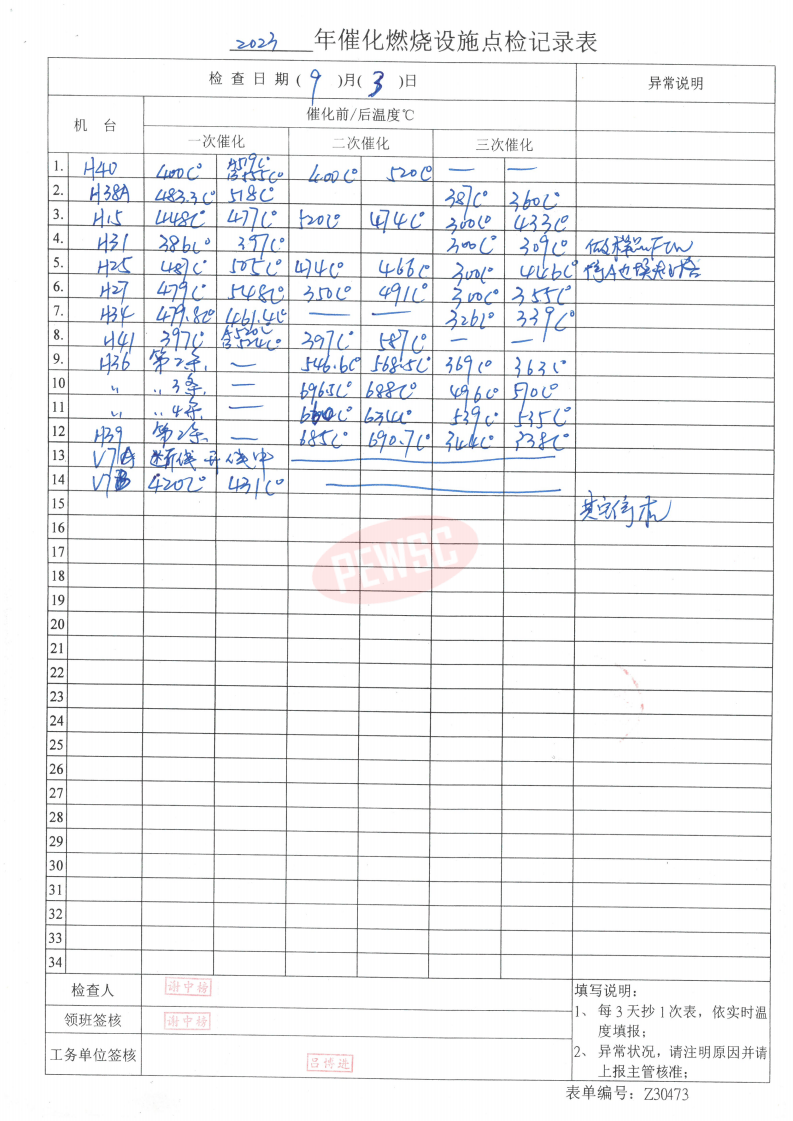 2023 年催化燃烧设施点检记录表
检查日期(9)月(3)日 异常说明
机台 催化前/后温度℃
一次催化 二次催化 三次催化
1. H40 400C° A519C° B555C° 400C° 520C° — —
2. H38A 483.3C° 518C° 387C° 360C°
3. H15 448C° 477C° 520C° 474C° 300C° 433C°
4. H31 386C° 397C° 300C° 309C° 做样品
5. H25 487C° 505C° 474C° 466C° 300C° 446C°
6. H27 479C° 548C° 350C° 491C° 300C° 355C°
7. H34 479.8C° 461.4C° — — 326C° 339C°
8. H41 397C° A520C° B524C° 397C° 587C° — —
9. H36 第2条. — 546.6C° 568.5C° 369C° 363C°
10 〃 〃3条 — 696.5C° 688C° 496C° 510C°
11 〃 〃4条 — 634C° 539C° 535C°
12 H39 第2条. — 685C° 690.7C° 344C° 338C°
13 V7A 断线开线中
14 V7B 420C° 431C°
15 其它停机
16
PEWSC
17
18
19
20
21
22
23
24
25
26
27
28
29
30
31
32
33
34
检查人 谢中榜
领班签核 谢中榜
工务单位签核 吕博进
填写说明:
1、每3天抄1次表，依实时温
度填报;
2、异常状况，请注明原因并请
上报主管核准;
表单编号: Z30473